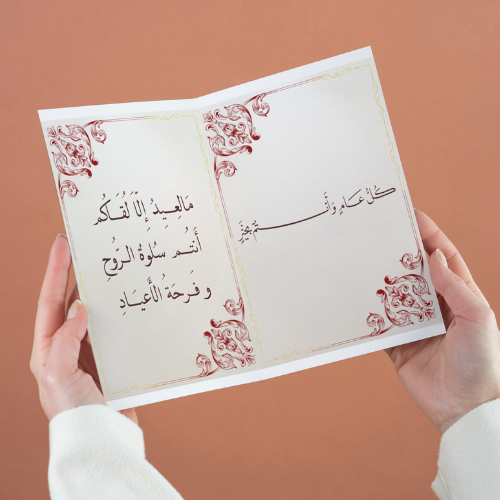 كُلُّ عَامٍ وَأَنْتُمْ بِخَيْرٍ
مَالعِيدُ إِلَّا لُقَاكُم
أَنتُم سُلوَةُ الرُّوحِ
و فَرحَةُ الأَعيَادِ